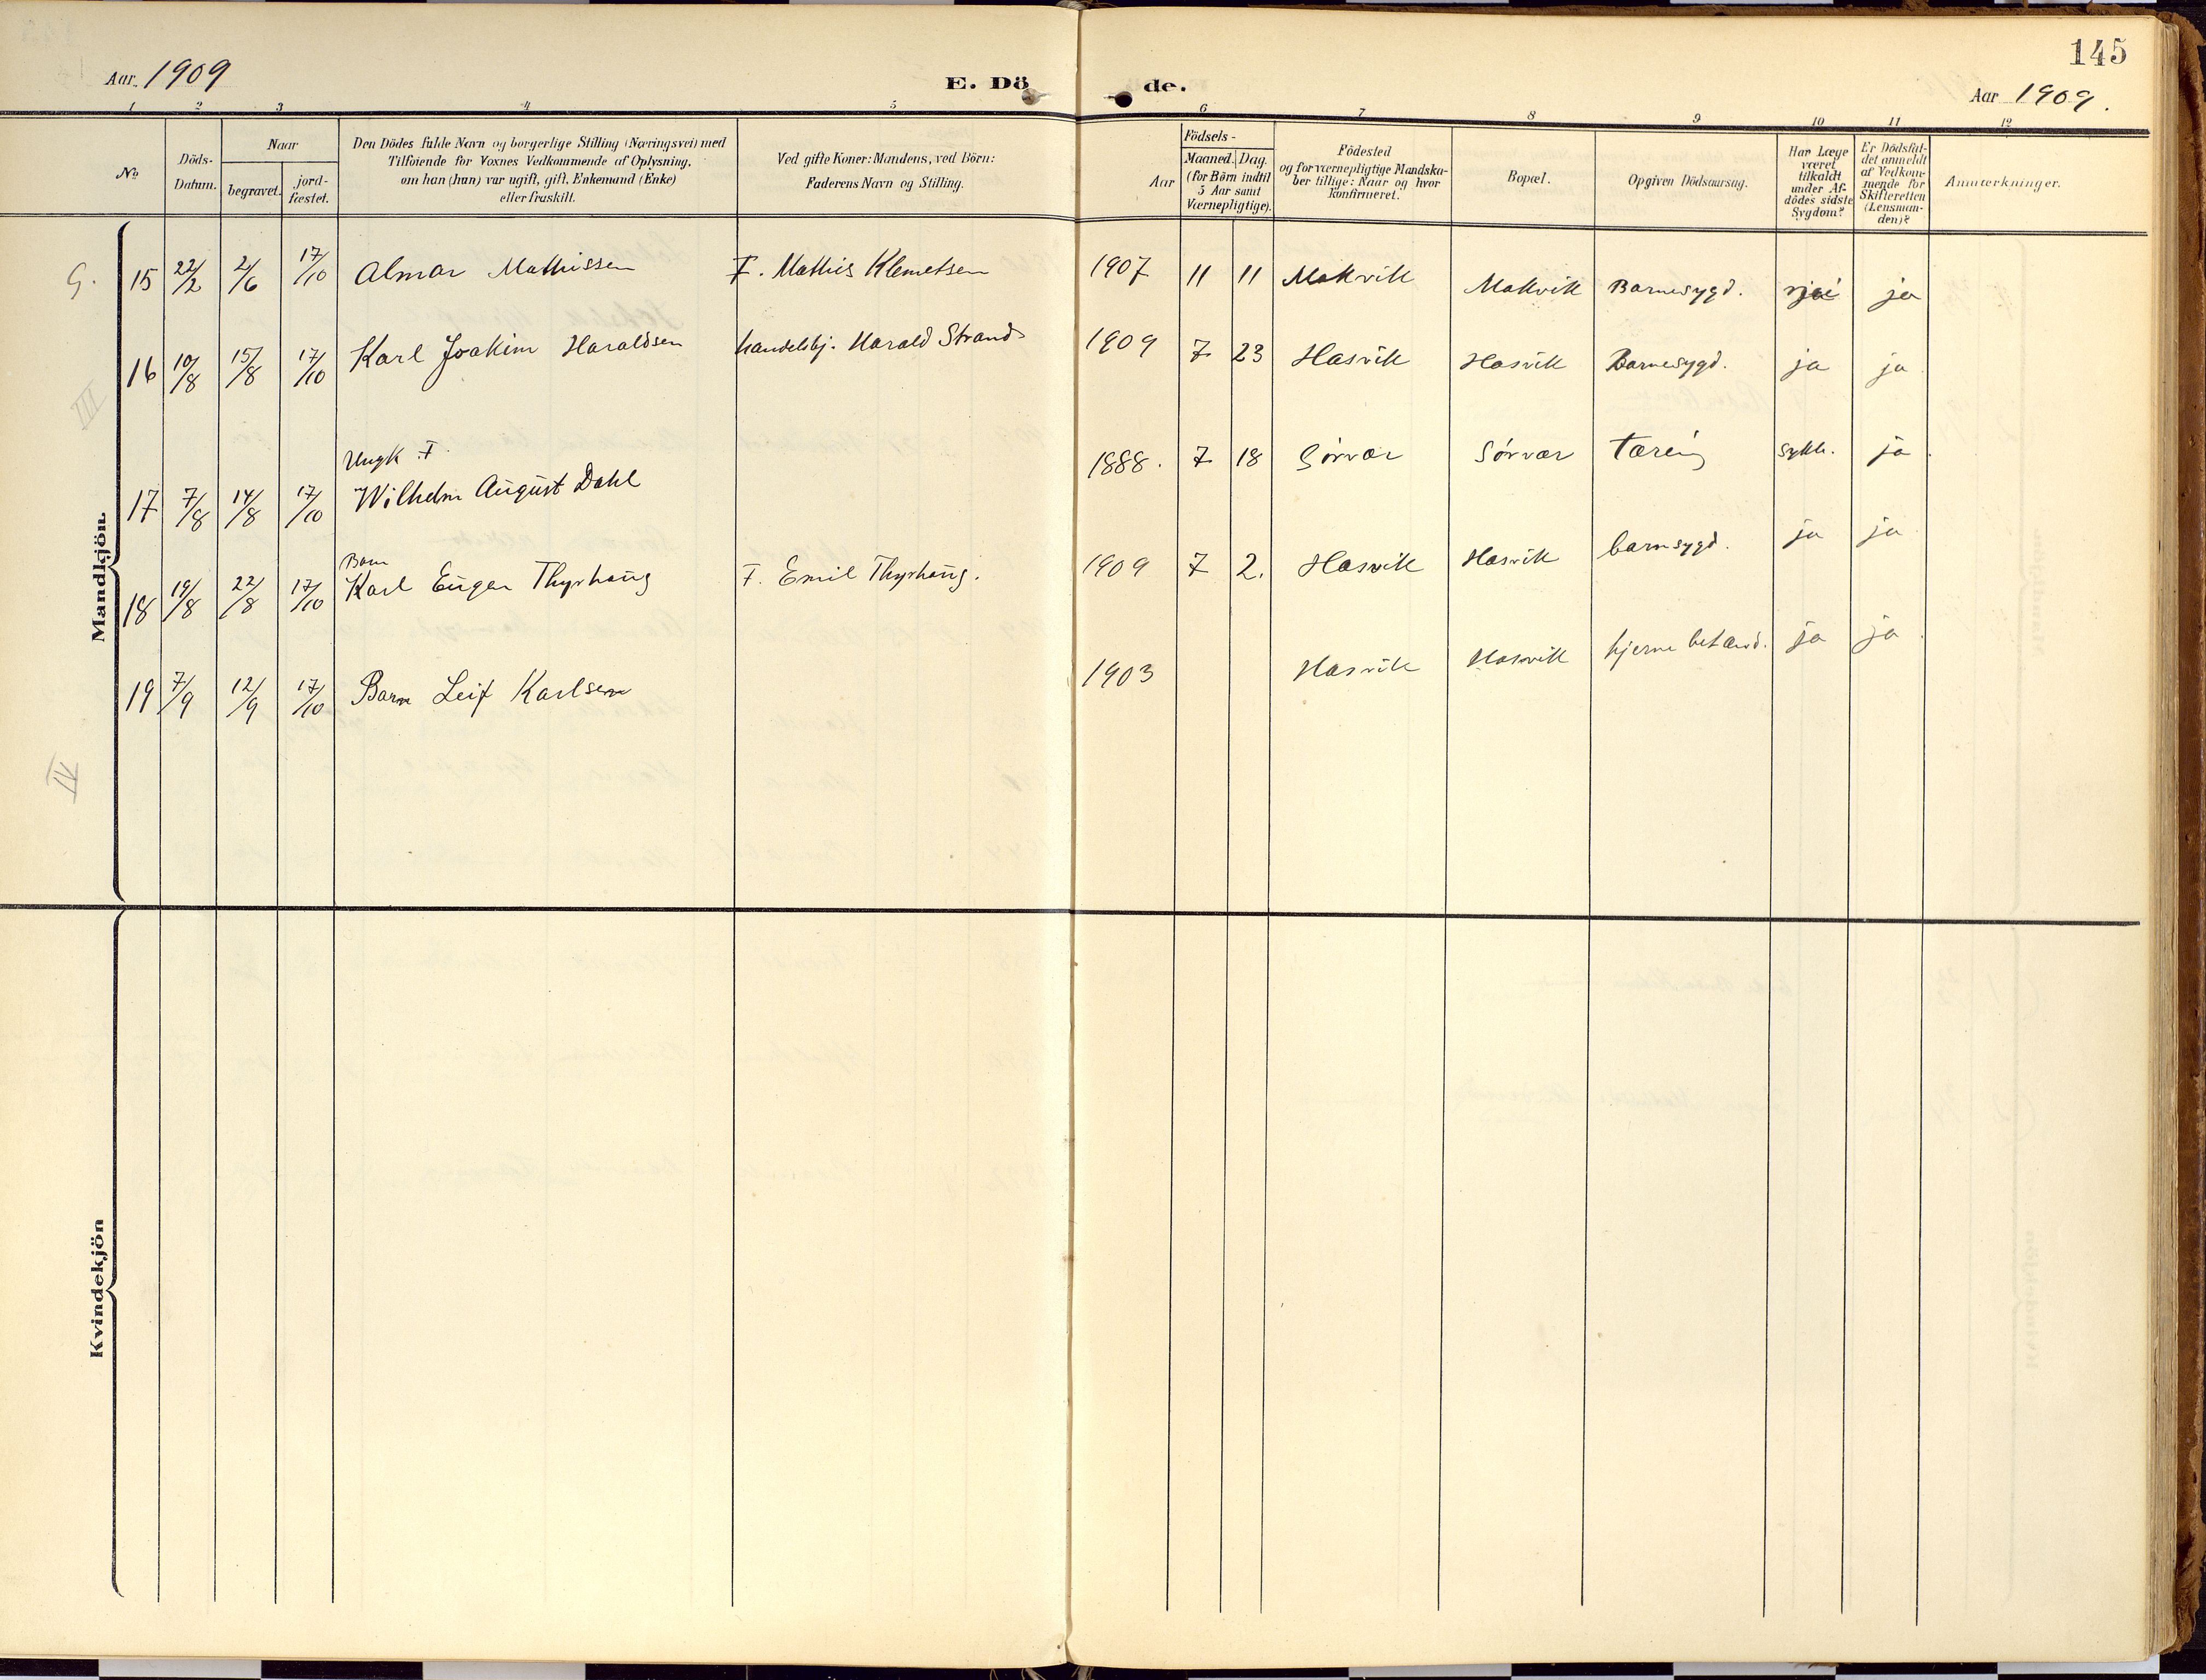 145
Aar. 1909
E. Dö de.
Aar 1909.
1 2 3 4 5 6 7 8 9 10 11 12
No
Döds-
Datum.
Naar
begravet.
jord-
fæstet.
Den Dödes fulde Navn og borgerlige Stilling (Næringsvei) med
Tilföiende for Voxnes Vedkommende af Oplysning,
om han (hun) var ugift, gift, Enkemand (Enke)
eller fraskilt.
Ved gifte Koner: Mandens, ved Börn:
Faderens Navn og Stilling.
Födsels-
Aar
Maaned. Dag.
(for Börn indtil
5 Aar samt
Værnepligtige).
Födested
og for værnepligtige Mandska-
ber tillige: Naar og hvor
konfirmeret.
Bopæl.
Opgiven Dödsaarsag.
Har Læge
været
tilkaldt
under Af-
dödes sidste
Sygdom?
Er Dödsfal-
det anmeldt
af Vedkom-
mende for
Skifteretten
(Lensman-
den)?
Anmærkninger.
Mandkjön.
G.
15 22/2 2/6 17/10 Almar Mathissen F. Mathis Klemetsen 1907 11 11 Makvik Makvik Barnesygd. ja
III
16 10/8 15/8 17/10 Karl Joakim Haraldsen handelsbj. Harald Strand 1909 7 23 Hasvik Hasvik Barnesygd. ja ja
Ungk. F.
17 7/8 14/8 17/10 Wilhelm August Dahl 1888. 7 18 Sörvær Sörvær Tæring sykh. ja
Barn
18 19/8 22/8 17/10 Karl Eugen Thyrhaug F. Emil Thyrhaug. 1909 7 2. Hasvik Hasvik barnsygd. ja ja
19 7/9 12/9 17/10 Barn Leif Karlsen 1903 Hasvik Hasvik hjerne betænd. ja ja
IV
Kvindekjön